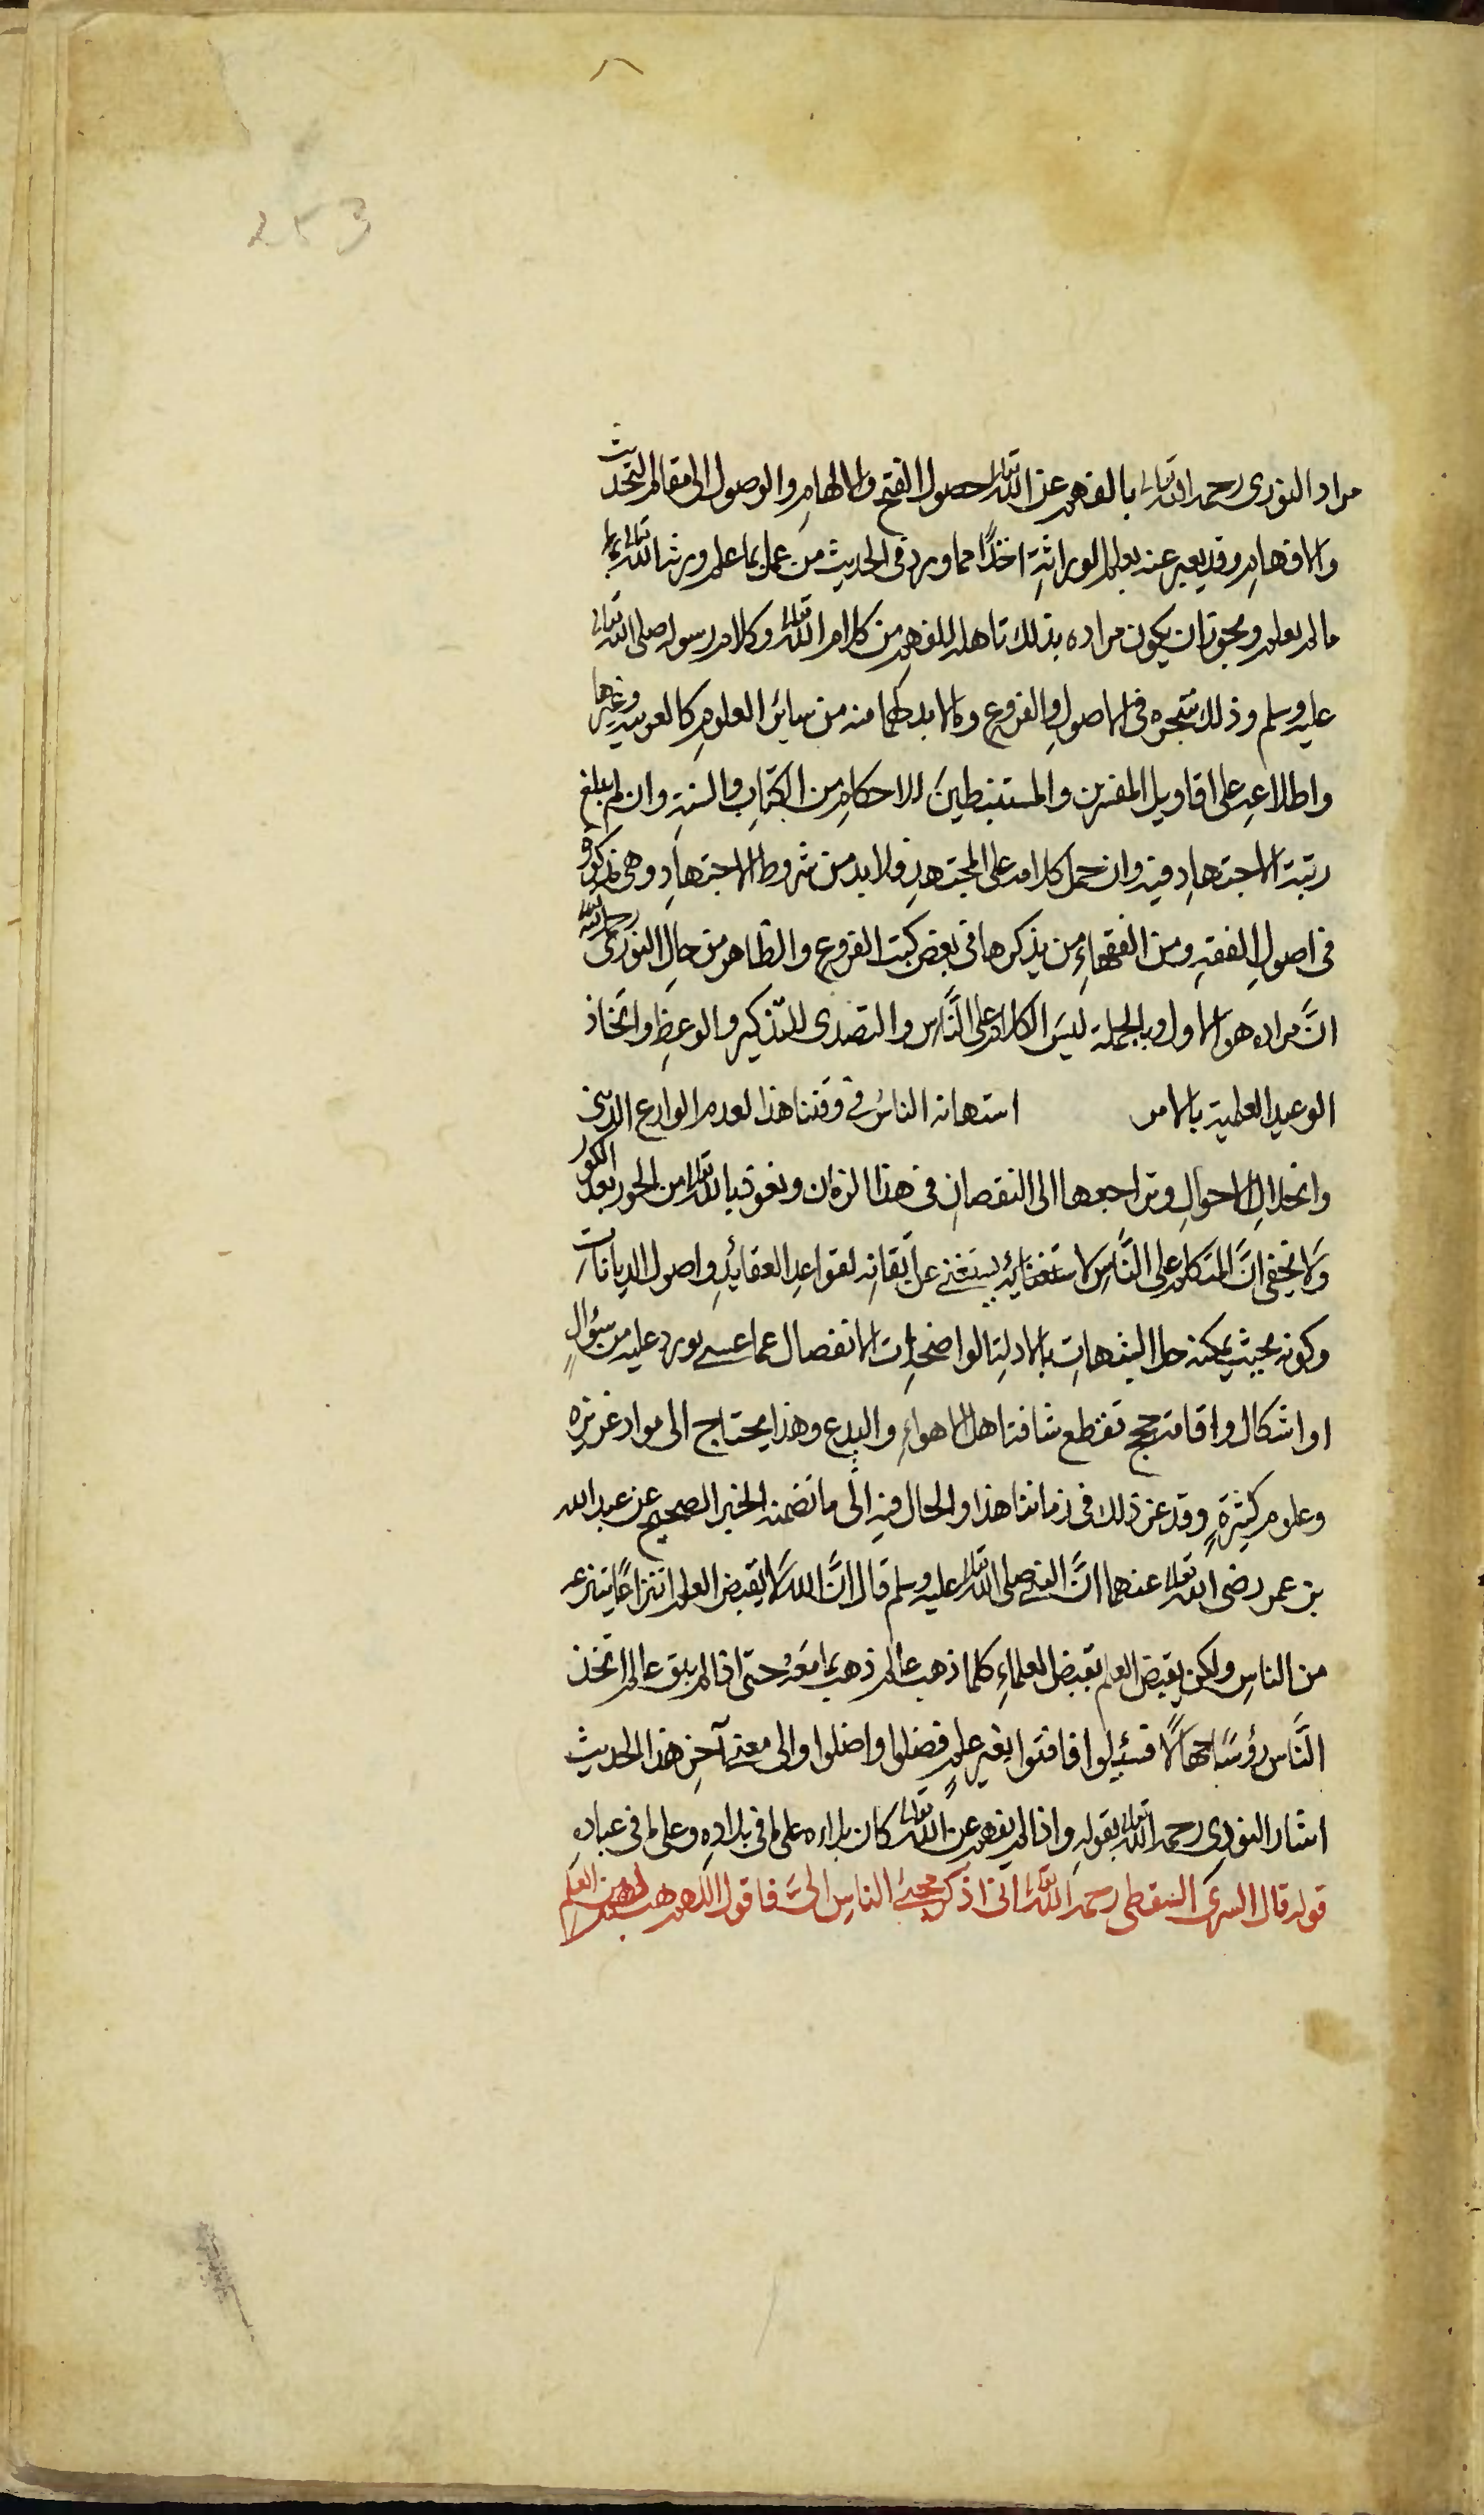 253
مراد النوري رحمه الله تعالى بالفهم عن الله تعالى حصول الفتح والالهام والوصول الى مقام التحديث
والافهام وقد يعبر عنه بعلم الوراثة اخذًا مما ورد في الحديث من عمل بما علم ورثه الله تعالى
ما لم يعلم ويجوز ان يكون مراده بذلك تاهله للفهم من كلام الله تعالى وكلام رسوله صلى الله تعالى
عليه وسلم وذلك بتبحره في الاصول والفروع وما لا بد لهما منه من سائر العلوم كالعربية وغيرها
واطلاعه على اقاويل المفسرين والمستنبطين للاحكام من الكتاب والسنة وان لم يبلغ
رتبة الاجتهاد فيه وان حمل كلامه على المجتهد فلا بد من شروط الاجتهاد وهي مذكورة
في اصول الفقه ومن الفقهاء من يذكرها في بعض كتب الفروع والظاهر من حال النوري رحمه الله
انَّ مراده هو الاول وبالجملة ليس الكلام على النَّاس والتصدى للتذكير والوعظ واتخاذ
الوعيد العلمية بالامر استهانه الناس في وقتنا هذا لعدم الوازع الديني
وانحلال الاحوال وتراجعها الى النقصان في هذا الزمان ونعوذ بالله تعالى من الحور بعد الكور
ولا يخفى انَّ المتكلم على النَّاس لا يستغنى عن اتقانه لقواعد العقائد واصول الديانات
وكونه بحيث يمكنه حل الشبهات بالادلة الواضحات الانفصال عما عسى يورد عليه من سؤالٍ
او اشكال واقامة حجج تقطع شافة اهل الاهواء والبدع وهذا يحتاج الى مواد غزيرة
وعلوم كثيرةٍ وقد عزّ ذلك في زماننا هذا والحال فيه الى ما تضمنه الخبر الصحيح عن عبد الله
بن عمر رضى الله تعالى عنهما انَّ النبي صلى الله تعالى عليه وسلم قال انَّ الله لا يقبض العلم انتزاعًا ينتزعه
من الناس ولكن يقبض العلم بقبض العلماء كلما ذهب عالم ذهب بما معه حتى اذا لم يبق عالم اتخذ
النَّاس رؤسًا جهالًا فسئلوا فافتوا بغير علمٍ فضلوا واضلوا والى معنى آخر هذا الحديث
اشار النوري رحمه الله تعالى بقوله واذا لم يفهم عن الله تعالى كان بلاءه على ما في بلاده وعلى ما في عباده
قوله قال السرى السقطى رحمه الله تعالى انى اذكر مجئ الناس الىَّ فاقول اللهم هب لهم من العلم